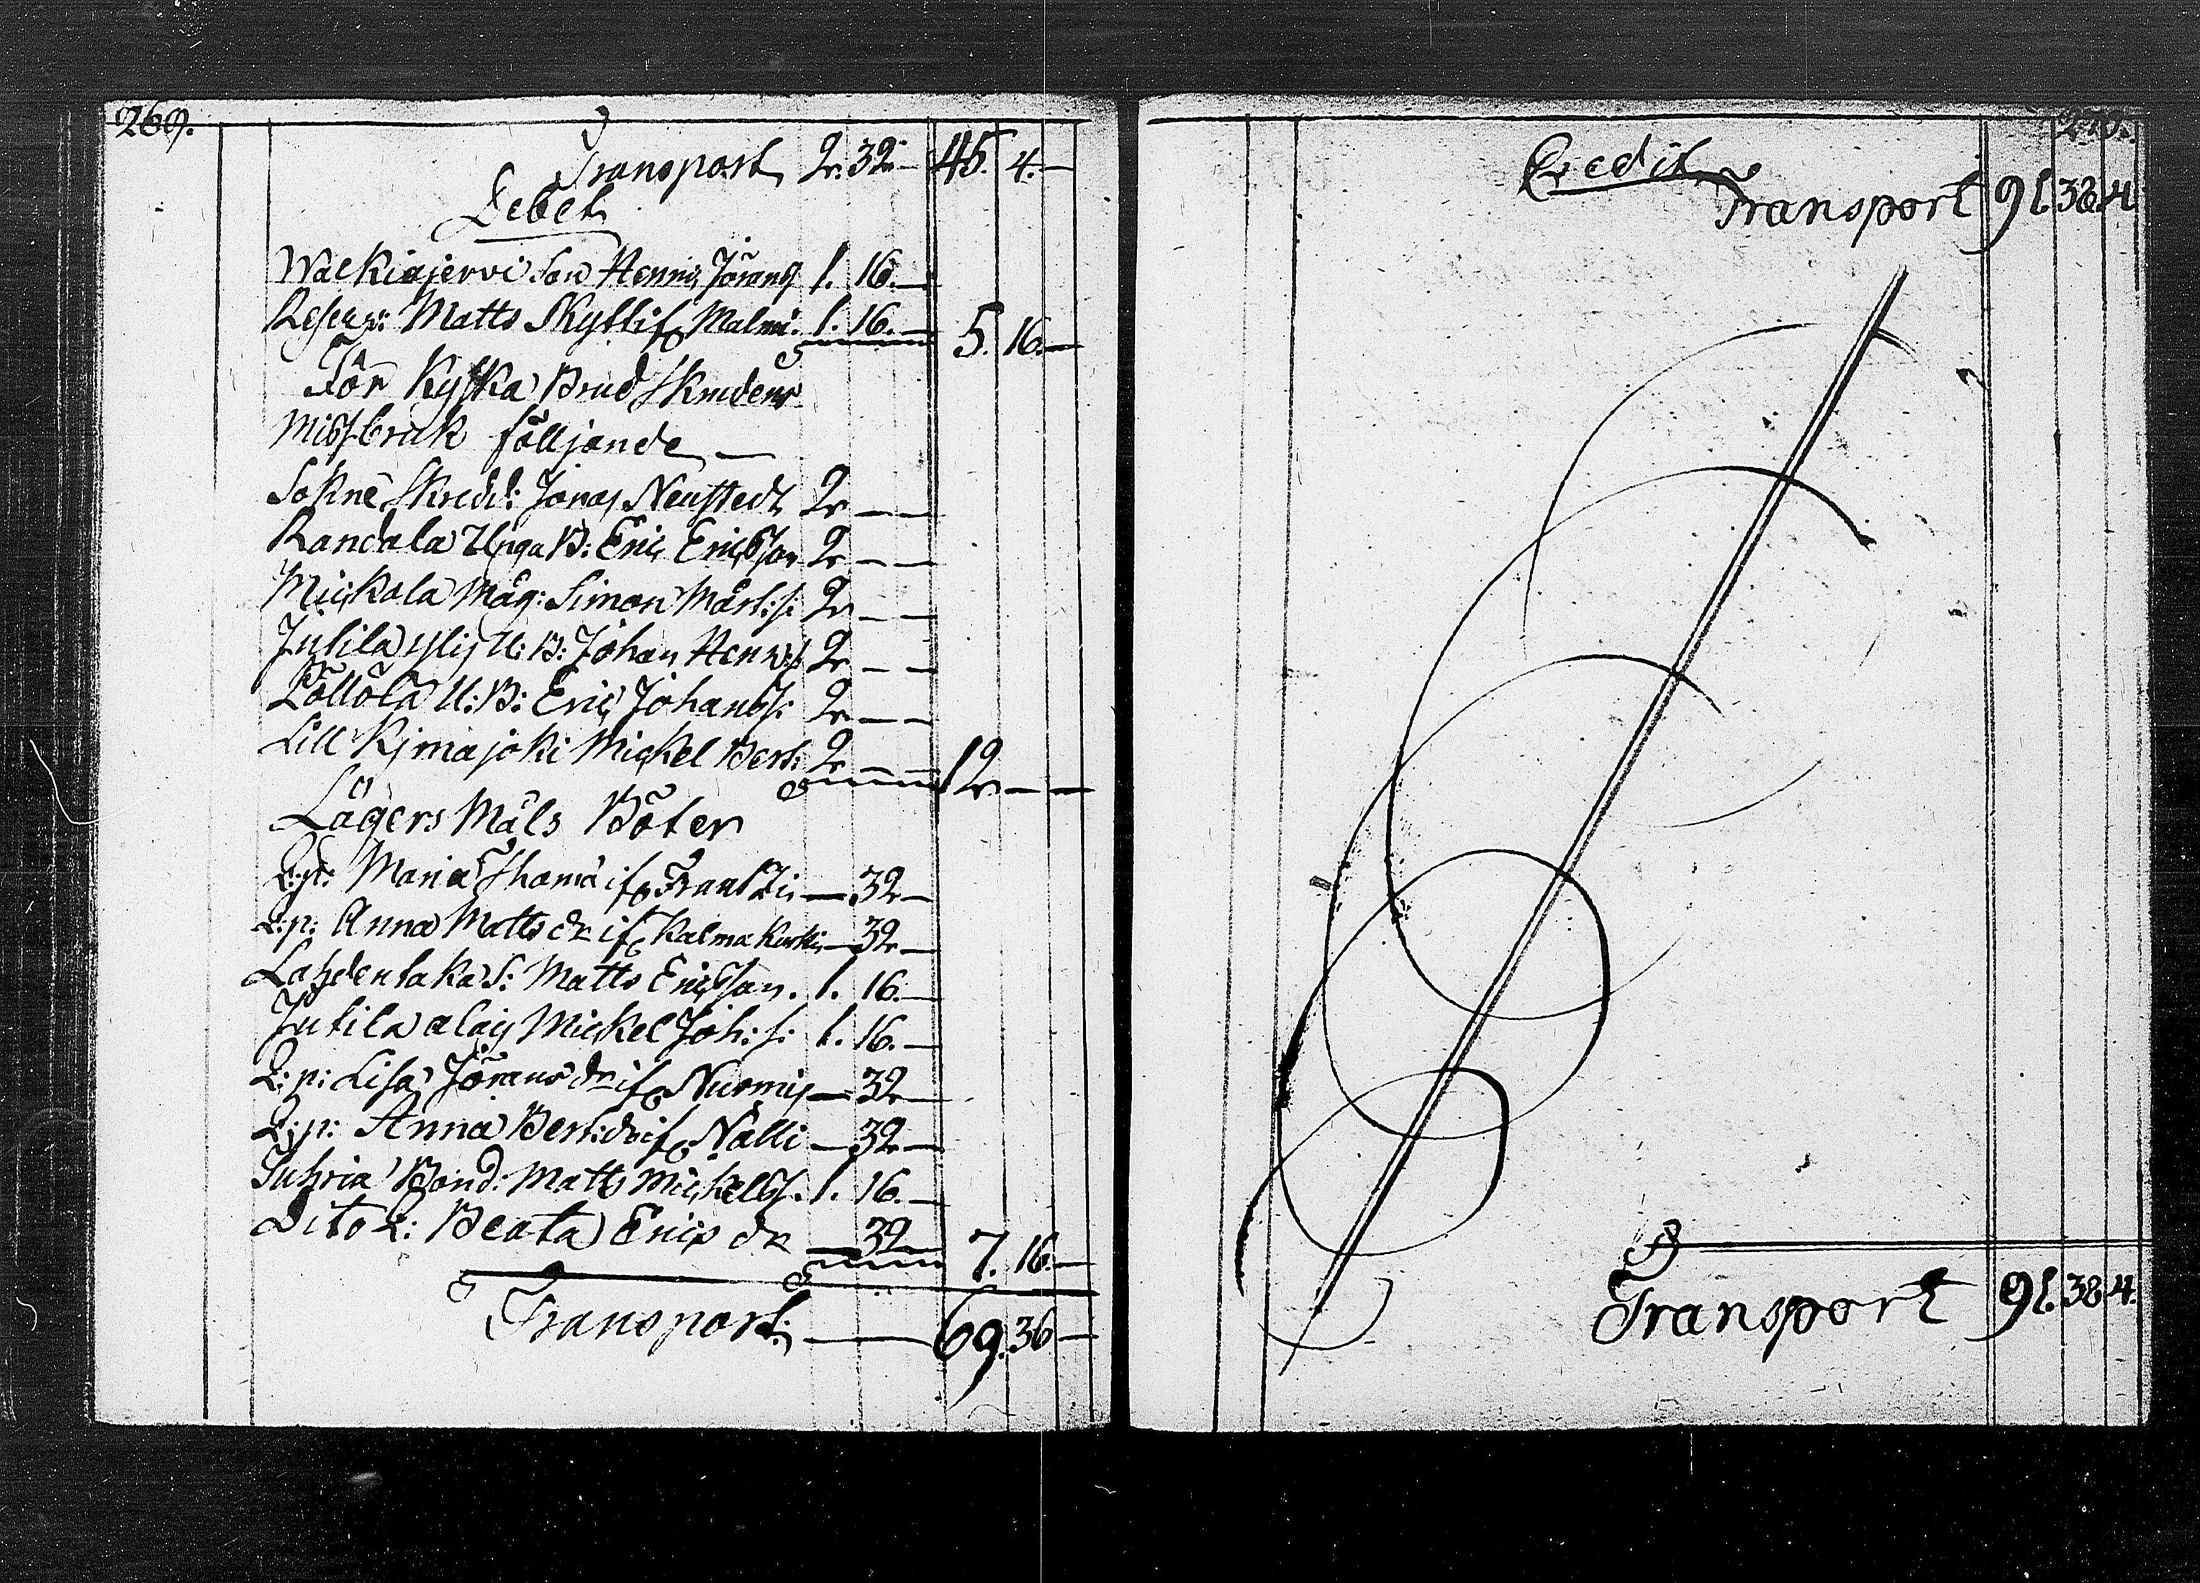 269.
Transport, 2. 32. — 45. 4. —
Debet
Wälkiäjervi Son Henric Jöranss 1. 16. —
Matts Kyttij Malmi. 1. 16. — 5. 16. —
För Kyska Brud Skrudens
Missbruk följande —
Sokne Skredd: Jonas Neustedt 2 — —
Randala Unga B: Eric Ericsson 2 — —
Mickala Måg: Simon Märt: s: 2 — —
Jutila U: B: Johan Henr: s 2 — —
Löllölä U: B: Eric Johanss: 2 — —
Lill Kjmajoki Mickel Bert: 2 — — 12 — —
Lägers Måls Böter
Q: p: Maria Thoma if Frantti — 32 —
Q: p: Anna Matts dr if Kalmakurki — 32 —
Lahdentaka S: Matts Ericsson. 1. 16. —
Jutila alaij Mickel Joh: s: 1. 16. —
Q: p: Lisa Jörans dr if Nurmi — 32 —
Q: p: Anna Bert: dr if Nälli — 32 —
Juhria Bond: Matts Mickelss. 1. 16. —
Dito Q: Beata Erics dr — 32 — 7. 16. —
Transport: — 69. 36 —
270.
Credit
Transport 91. 38. 4
Transport 91. 38. 4.